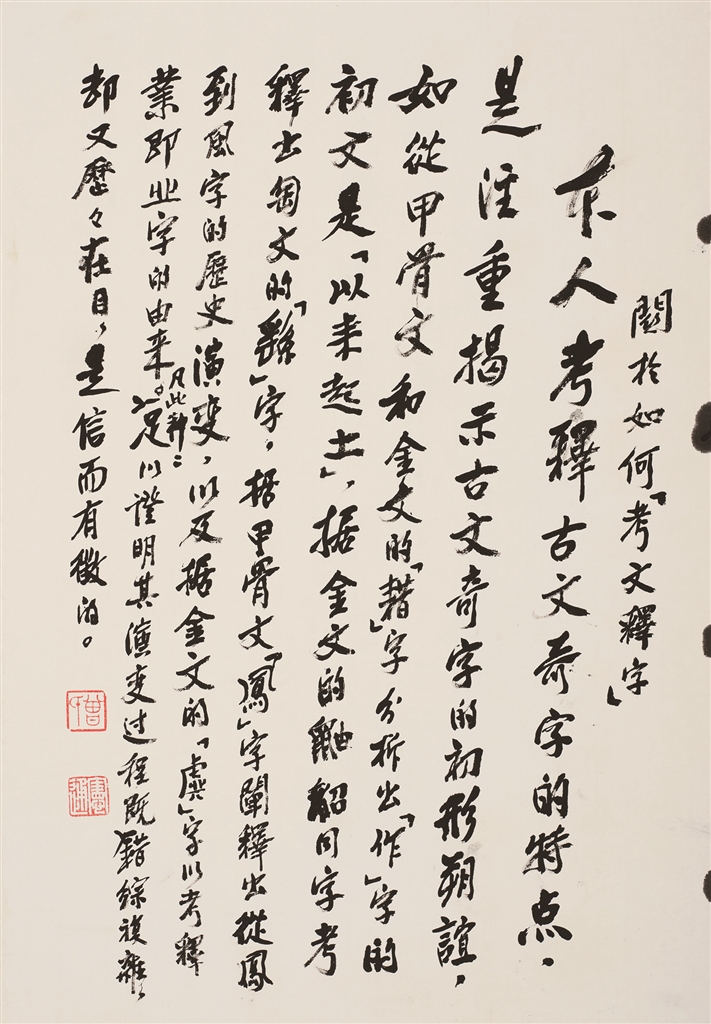 關於如何「考文釋字」
本人考釋古文奇字的特点，
是注重揭示古文奇字的初形朔誼，
如從甲骨文和金文的「耤」字分析出「作」字的
初文是「以耒起土」，据金文的 䚃同字考
釋出匋文的「繇」字，据甲骨文「鳳」字闡釋出從鳳
到風字的歷史演变，以及据金文的「虡」字以考釋
業即业字的由来。凡此種種，足以證明其演变过程既錯綜複雜，
却又歷々在目，是信而有徵的。
曾
憲通